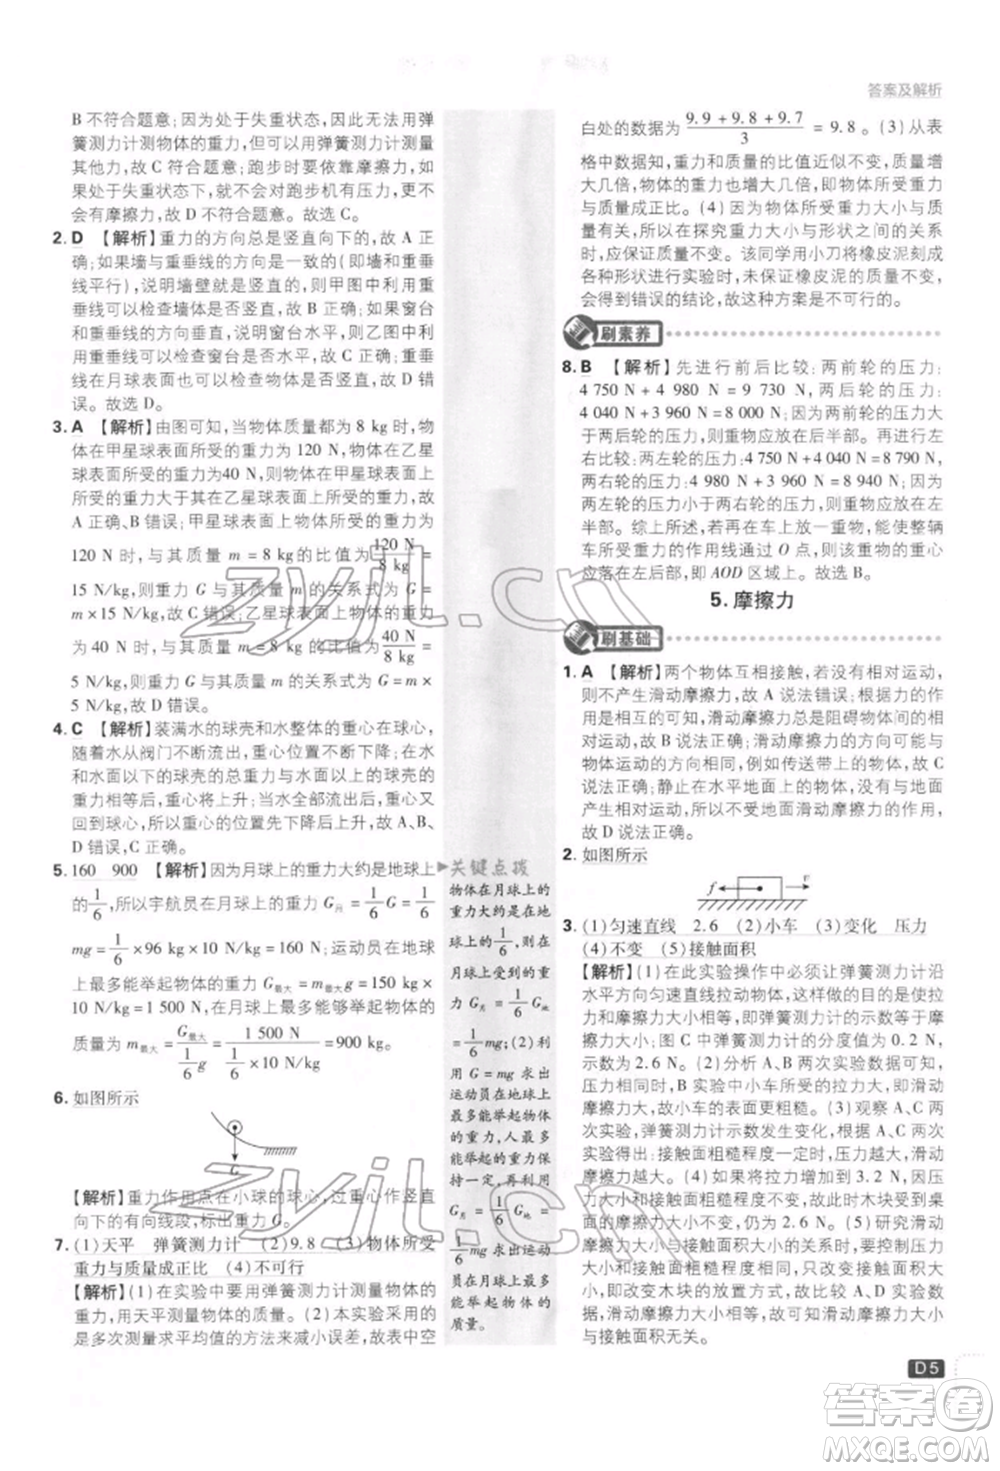 答案及解析
B 不符合题意；因为处于失重状态，因此无法用弹
簧测力计测物体的重力，故 C 符合题意；跑步时要
依靠摩擦力，在跑步时依靠摩擦力，如
果处于失重状态下，没有对跑步机有压力，也就没
有摩擦力，故 D 不符合题意。故选 C。
2. D 【解析】重力的方向总是竖直向下的，故 A 正
确；如果墙与重垂线的方向是一致的（即墙和重垂
线平行），说明墙壁就是竖直的，则甲图中利用重
垂线可以检查墙体是否竖直，故 B 正确；如果窗台
与重垂线的方向垂直，说明窗台水平，则乙图中利
用重垂线可以检查窗台是否水平，故 C 正确；乙图
在月球表面也可以检查窗台是否竖直，故 D 错
误。故选 D。
3. A 【解析】由图可知，当物体质量都为 8 kg 时，物
体在甲星球表面所受的重力为 120 N，物体在乙星
球表面所受的重力为40 N，则物体在甲星球表面
所受的重力大于其在乙星球表面所受的重力，故
A 正确、B 错误；甲星球表面上物体的重力为
120 N 时，与其质量 m = 8 kg 的比值为 120 N/8 kg =
15 N/kg，则重力 G 与质量 m 的关系式为 G =
m×15 N/kg，故 C 错误；乙星球表面上物体的重力
为 40 N 时，与其质量 m = 8 kg 的比值为 40 N/8 kg =
5 N/kg，则重力 G 与质量 m 的关系式为 G = m×
5 N/kg，故 D 错误。故选 A。
4. C 【解析】装满水的球壳和水整体的重心在球心，
随着水从阀门不断流出，重心位置不断下降；在水
和水面以下的球壳的总重力与水面以上的球壳的
重力相等时，重心将上升；当水全部流出后，重心又
回到球心，所以重心的位置先下降后上升，故 A、B、
D 错误，C 正确。故选 C。
5. 160 900 【解析】因为月球上的重力大约是地球上
的 1/6，所以宇航员在月球上的重力 G月 = 1/6 G = 1/6
mg = 1/6 × 96 kg × 10 N/kg = 160 N；运动员在地球上
最多能举起物体的重力 G最大 = m最大 g = 150 kg ×
10 N/kg = 1 500 N，在月球上他最多能举起物体的
质量为 m最大 = G最大/(1/6 g) = 1 500 N/(1/6×10 N/kg) = 900 kg。
6. 如图所示
G
【解析】重力作用点在小球的球心，过重心作竖直
向下的有向线段，标出重力 G。
7. (1)天平 弹簧测力计 (2)9.8 (3)物体所受
重力与质量成正比 (4)不可行
【解析】(1) 在实验中要用弹簧测力计测量物体的重
力，用天平测量物体的质量。(2) 本实验采用的是
多次测量求平均值的方法来减小误差，故表中空
关键点拨
物体在月球上的
重力大约是在地
球上的 1/6，则在
月球上受到的重
力 G月 = 1/6 G地
= 1/6 mg；(2)利
用 G = mg 求出
运动员在地球上
最多能举起物体
的重力，人最多
能举起的重力保
持一定，再利用
G月 = 1/6 G地 =
1/6 mg 求出运动
员在月球上最多
能举起物体的
质量。
白处的数据为 (9.9+9.8+9.7)/3 = 9.8。(3) 从表
格中数据知，重力和质量的比值近似不变，质量增
大几倍，物体的重力也增大几倍，即物体所受的重
力与质量成正比。(4) 因为物体所受重力大小与质
量有关，所以在探究重力大小与形状之间的关系
时，应保证质量不变。该同学用小刀将橡皮泥刻成
各种形状进行实验时，未保证橡皮泥的质量不变，
会得到错误的结论，故这种方案是不可行的。
刷素养
8. B 【解析】先进行前后比较：两前轮的压力：
4 750 N + 4 980 N = 9 730 N，两后轮的压力：
4 040 N + 3 960 N = 8 000 N；因为两前轮的压力大
于两后轮的压力，则重物应放在后半部。再进行左
右比较：两左轮的压力：4 750 N + 4 040 N = 8 790 N，
两右轮的压力：4 980 N + 3 960 N = 8 940 N；因为
两左轮的压力小于两右轮的压力，则重物应放在左
半部。综上所述，若再在车上放一重物，能使整辆
车所受重力的作用线通过 O 点，则该重物的重心
应落在 AOD 区域上。故选 B。
5. 摩擦力
刷基础
1. A 【解析】两个物体互相接触，如果没有相对运动，
则不产生滑动摩擦力，故 A 说法错误；根据摩擦力
的定义可知，滑动摩擦力总是阻碍物体间的相对
运动，故 B 说法正确；滑动摩擦力的方向可能与
物体运动的方向相同，例如传送带上的物体，故
C 说法正确；静止在水平地面上的物体，没有发生
相对运动，不可能受地面滑动摩擦力的作用，
故 D 说法正确。故选 A。
2. 如图所示
f v
3. (1)匀速直线 2.6 (2)小车 (3)变化 压力
(4)不变 (5)接触面积
【解析】(1) 在此实验操作中必须让弹簧测力计沿
水平方向匀速直线拉动物体，这样做的目的是使拉
力和摩擦力大小相等，即弹簧测力计的示数等于摩
擦力大小；图 C 中弹簧测力计的分度值为 0.2 N，
示数为 2.6 N。(2) 分析 A、B 两次实验数据可知，
B 实验中小车所受的拉力大，即小车所受的滑动
摩擦力大，故小车的表面更粗糙。(3) 观察 A、C 两
次实验，弹簧测力计示数发生变化，故由 A、C 两次
实验得出：接触面粗糙程度一定时，压力越大，滑动
摩擦力越大。(4) 如果此时拉力增大到 3.2 N，因为
压力和接触面粗糙程度不变，则此时木块受到
的摩擦力大小不变，仍为 2.6 N。(5) 探究滑动
摩擦力大小与接触面积大小的关系时，应控制
压力和接触面粗糙程度相同，D 实验在 A 实验
中，改变木块的放置方式，故比较 A、D 两次实
验数据，接触面积不同，故可知滑动摩擦力大
小与接触面积无关。
D5
zyjl.cn
zyjl.cn
答案圈
MXQE.COM